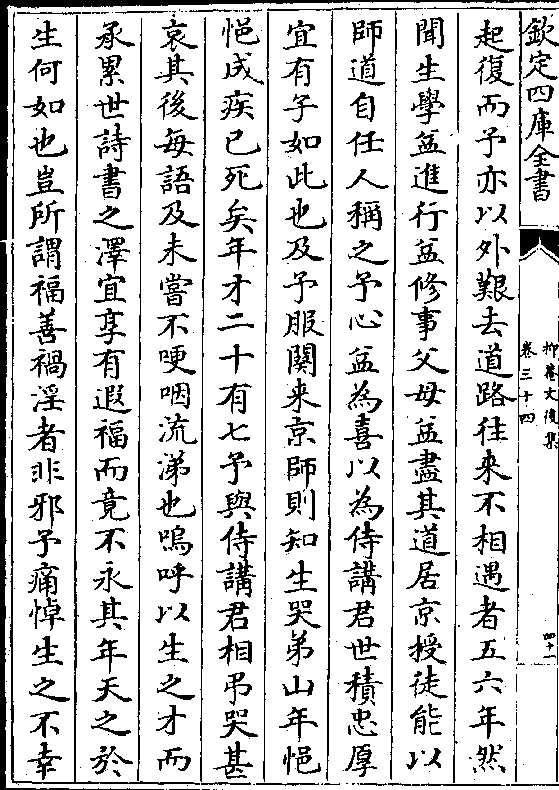 欽定四庫全書
抑菴文後集
卷三十四
四十一
起復而予亦以外艱去道路往來不相遇者五六年然
聞生學益進行益修事父母益盡其道居京授徒能以
師道自任人稱之予心益為喜以為侍講君世積忠厚
宜有子如此也及予服闋来京師則知生哭弟山年悒
悒成疾已死矣年才二十有七予與侍講君相弔哭甚
哀其後每語及未嘗不哽咽流涕也嗚呼以生之才而
承累世詩書之澤宜享有遐福而竟不永其年天之於
生何如也豈所謂福善禍淫者非邪予痛悼生之不幸